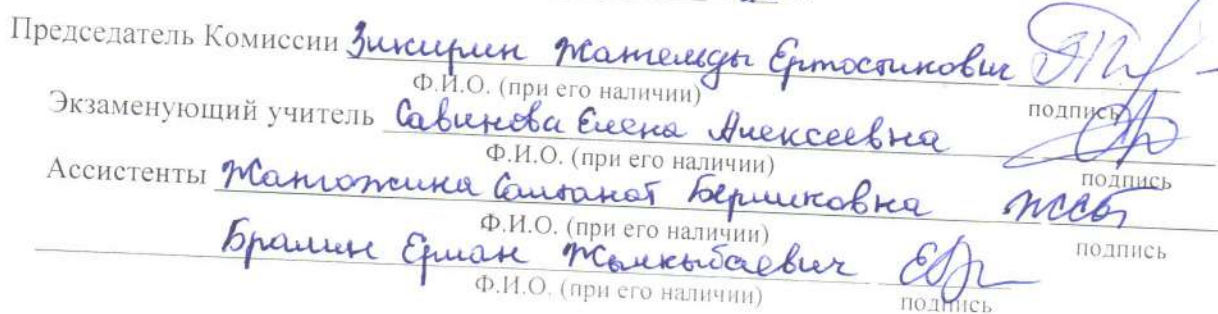 Председатель Комиссии Зикирин Жанелды Ертостикович
Ф.И.О. (при его наличии) подпись
Экзаменующий учитель Савинова Елена Алексеевна
Ф.И.О. (при его наличии) подпись
Ассистенты Жангожина Салтанат Бериковна
Ф.И.О. (при его наличии) подпись
Бралин Ерлан Жылкыбаевич
Ф.И.О. (при его наличии) подпись